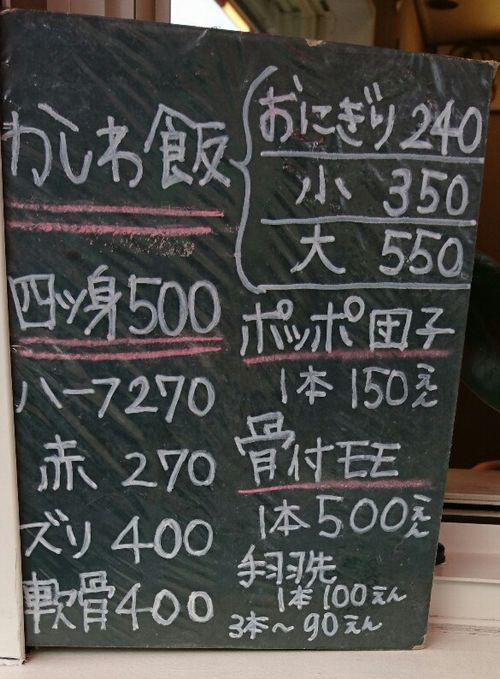 かしわ飯
おにぎり 240
小 350
大 550
四ッ身 500
ハーフ 270
赤 270
ズリ 400
軟骨 400
ポッポ団子
1本 150えん
骨付モモ
1本 500えん
手羽先
1本 100えん
3本〜 90えん